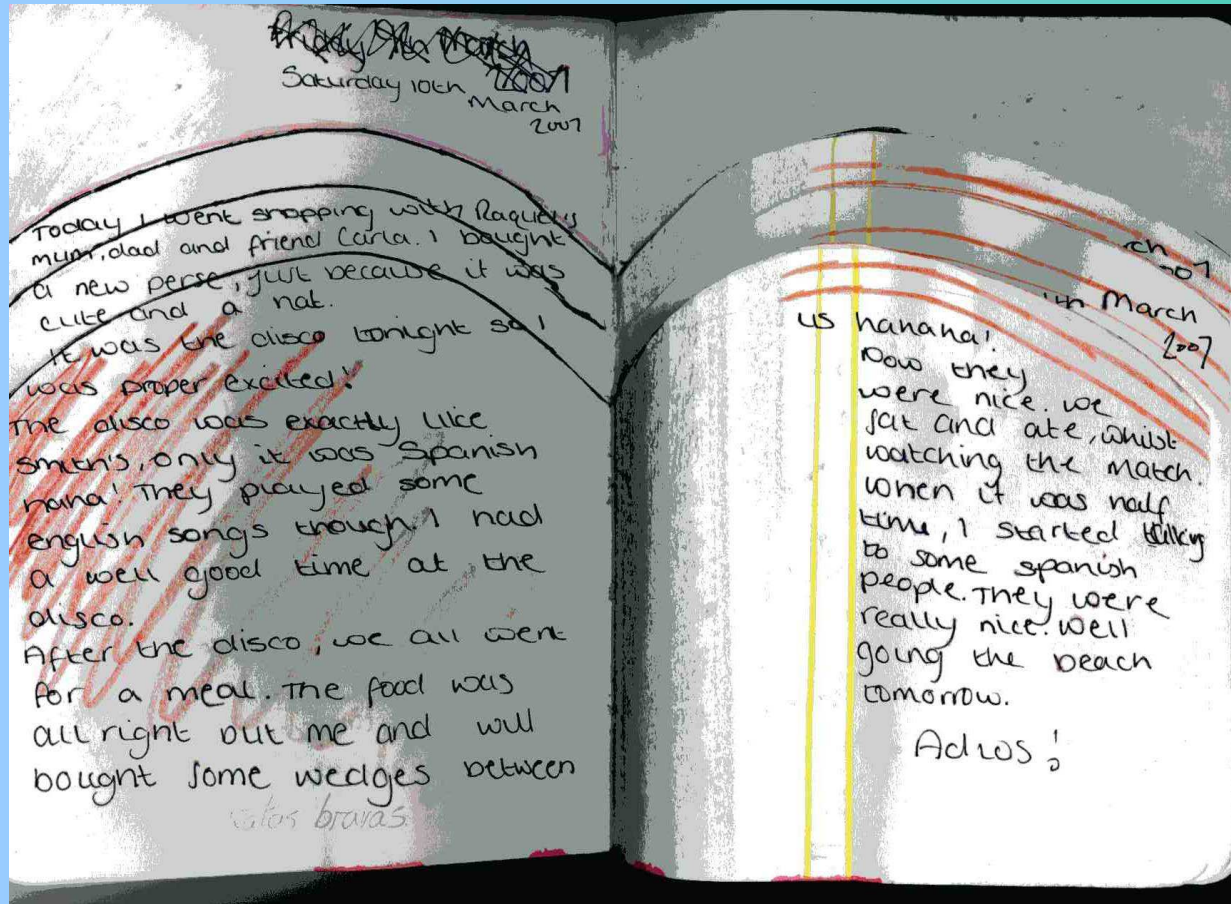 Friday 9th March
2007
Saturday 10th
March
2007
Today I went shopping with Raquel's
mum, dad and friend Carla. I bought
a new perse, just because it was
cute and a hat.
It was the disco tonight so I
was proper excited!
The disco was exactly like
smith's, only it was Spanish
haha! They played some
english songs though. I had
a well good time at the
disco.
After the disco, we all went
for a meal. The food was
all right but me and will
bought some wedges between
bravas
rch
2007
th March
2007
us hahaha!
Now they
were nice. we
sat and ate, whilst
watching the match.
when it was half
time, I started talking
to some spanish
people. They were
really nice. well
going the beach
tomorrow.
Adios!